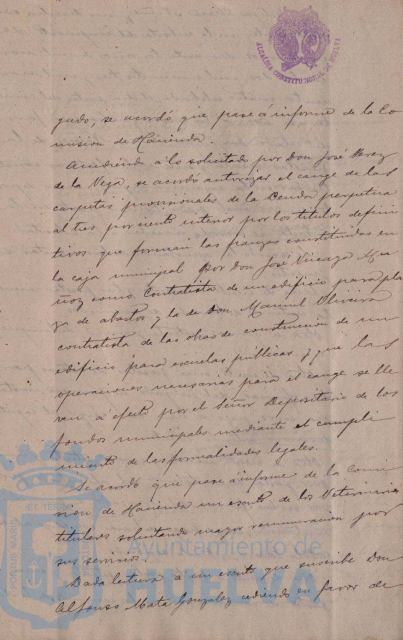 ALCALDIA CONSTITUCIONAL DE HUELVA
gado, se acordó que pase á informe de la Co
misión de Hacienda.
Accediendo á lo solicitado por Don José Perez
de la Vega, se acordó autorizar el cange de las
carpetas provisionales de la Deuda perpetua
al tres por ciento interior por los titulos defini
tivos que forman las fianzas constituidas en
la caja municipal por Don José Mu
ñoz como Contratista de un edificio para pla
za de abastos y la de Don Manuel Oliveira
contratista de las obras de construcción de un
edificio para escuelas públicas y que las
operaciones necesarias para el cange se lle
ven á efecto por el Señor Depositario de los
fondos municipales mediante el cumpli
miento de las formalidades legales.
Se acordó que pase á informe de la Comi
sión de Hacienda un escrito de los Veterinarios
titulares solicitando mayor remuneración por
sus servicios.
Dada lectura á un escrito que suscribe don
Alfonso Mata Gonzalez cediendo en favor de
Ayuntamiento de
HUELVA